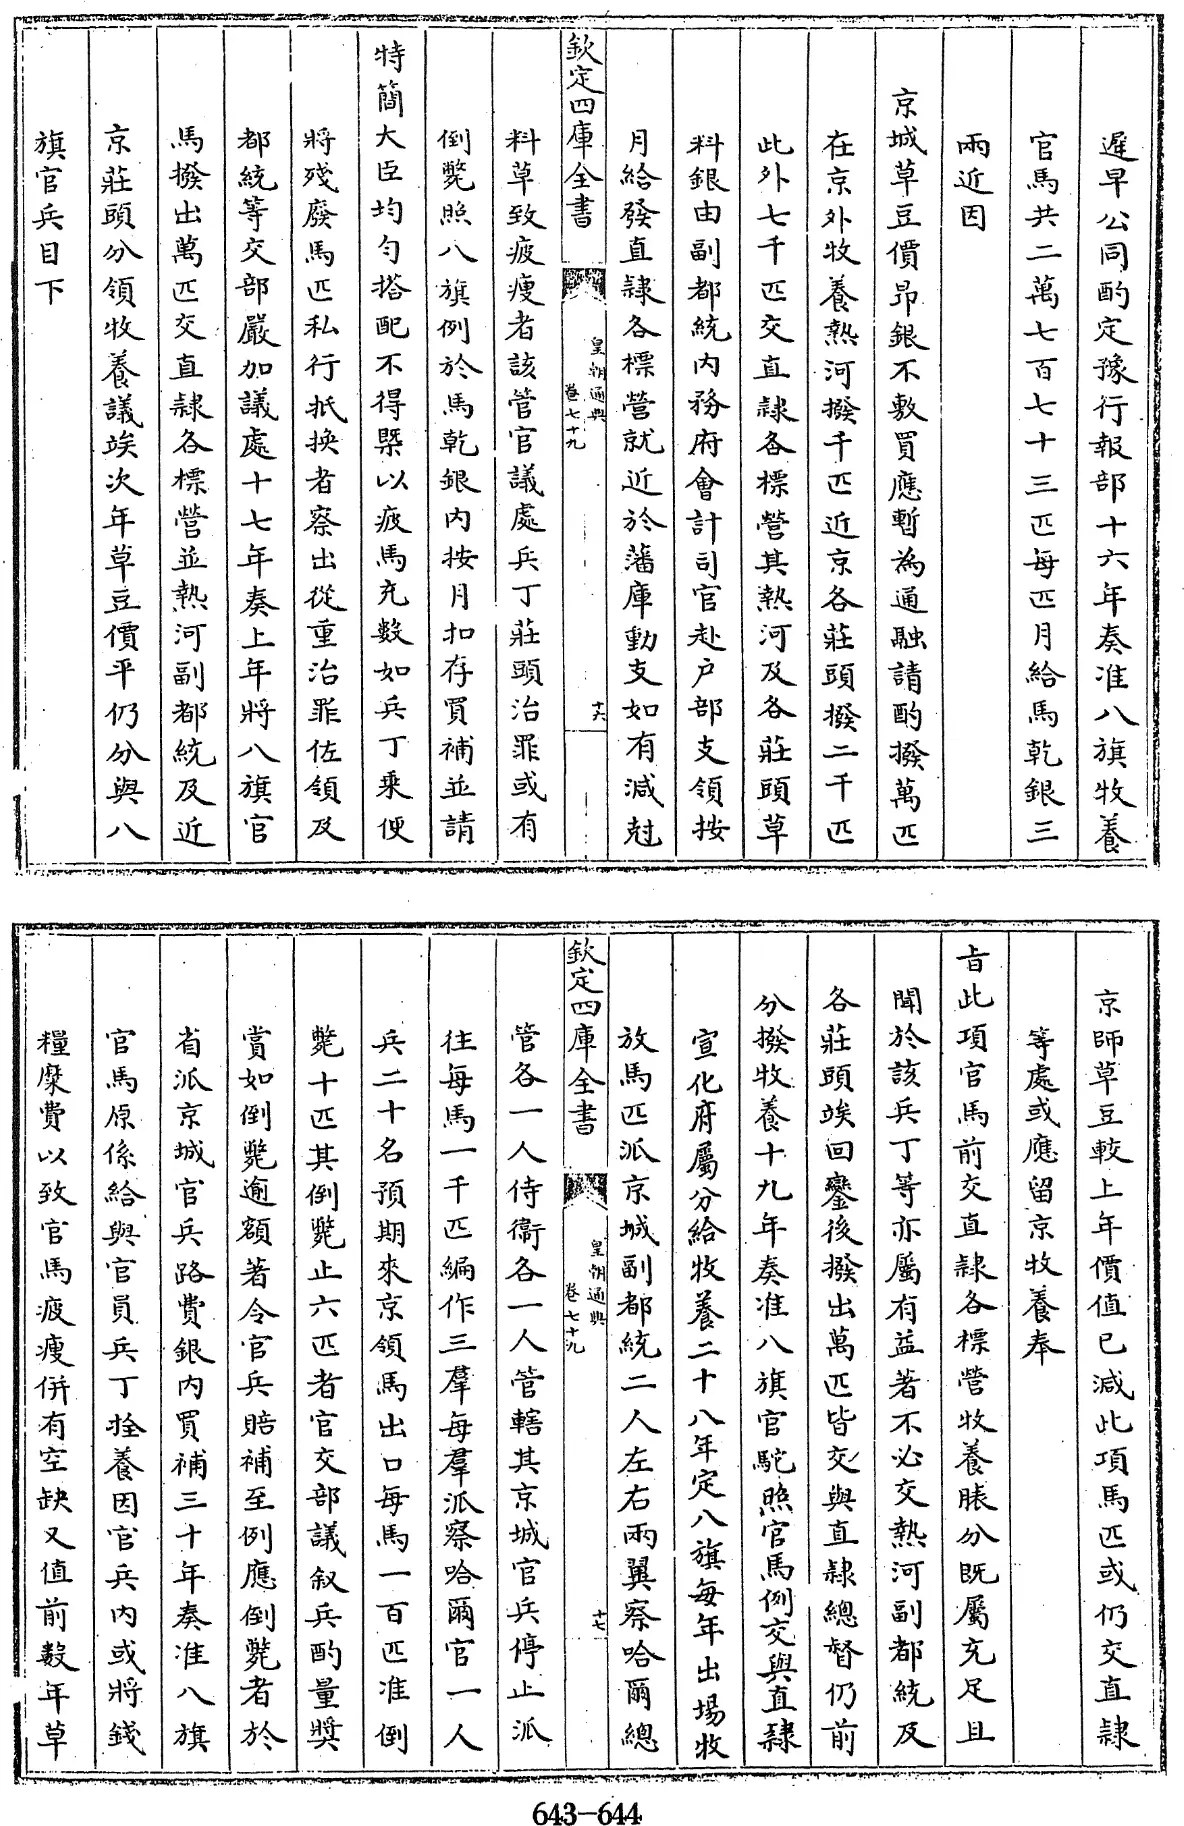 遲早公同酌定豫行報部十六年奏准八旗牧養
官馬共二萬七百七十三匹每匹月給馬乾銀三
兩近因
京城草豆價昻銀不敷買應暫為通融請酌撥萬匹
在京外牧養熱河撥千匹近京各莊頭撥二千匹
此外七千匹交直隸各標營其熱河及各莊頭草
料銀由副都統内務府會計司官赴户部支領按
月給發直隸各標營就近於藩庫動支如有減尅
欽定四庫全書
皇朝通典
卷七十九
十六
料草致疲瘦者該管官議處兵丁莊頭治罪或有
倒斃照八旗例於馬乾銀内按月扣存買補並請
特簡大臣均勻搭配不得槩以疲馬充數如兵丁乘便
將殘廢馬匹私行抵换者察出從重治罪佐領及
都統等交部嚴加議處十七年奏上年將八旗官
馬撥出萬匹交直隸各標營並熱河副都統及近
京莊頭分領牧養議竢次年草豆價平仍分與八
旗官兵目下
京師草豆較上年價值已減此項馬匹或仍交直隸
等處或應留京牧養奉
旨此項官馬前交直隸各標營牧養脹分既屬充足且
聞於該兵丁等亦屬有益著不必交熱河副都統及
各莊頭竢回鑾後撥出萬匹皆交與直隸總督仍前
分撥牧養十九年奏准八旗官駝照官馬例交與直隸
宣化府屬分給牧養二十八年定八旗每年出場牧
放馬匹派京城副都統二人左右兩翼察哈爾總
欽定四庫全書
皇朝通典
卷七十九
十七
管各一人侍衛各一人管轄其京城官兵停止派
往每馬一千匹編作三羣每羣派察哈爾官一人
兵二十名預期來京領馬出口每馬一百匹准倒
斃十匹其倒斃止六匹者官交部議叙兵酌量奬
賞如倒斃逾額著令官兵賠補至例應倒斃者於
省派京城官兵路費銀内買補三十年奏准八旗
官馬原係給與官員兵丁拴養因官兵内或將錢
糧糜費以致官馬疲瘦併有空缺又值前數年草
643-644